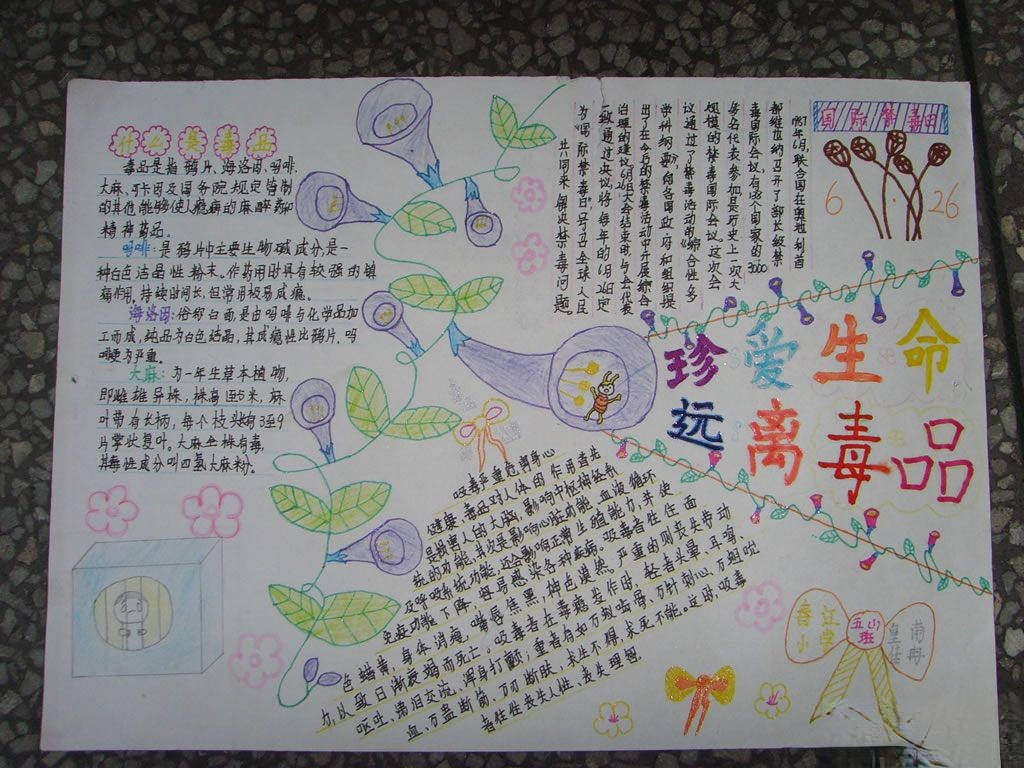 什么是毒品
毒品是指鸦片、海洛因、吗啡、
大麻、可卡因及国务院规定管制
的其他能够使人瘾癖的麻醉药和
精神药品。
吗啡：是鸦片中主要生物碱成分，是一
种白色洁晶性粉末。作药用时具有较强的镇
痛作用，持续时间长，但常用极易成瘾。
海洛因：俗称白面是由吗啡与化学品加
工而成，纯品为白色结晶，其成瘾性比鸦片、吗
啡更为严重。
大麻：为一年生草本植物，
即雌雄异株，株高1至5米，麻
叶带有长柄，每个枝头有3至9
片掌状复叶。大麻全株有毒，
其毒性成分叫四氢大麻粉。
国际禁毒日
6.26
1987年6月，联合国在奥地利首
都维也纳召开了部长级禁
毒国际会议，有138个国家的3000
多名代表参加是历史上一次大
规模的禁毒国际会议。这次会
议通过了禁毒活动的《综合性多
学科纲要》，向各国政府和组织提
出了在今后的禁毒活动中开展综合
治理的建议，6月26日大会结束时，与会代表
一致通过决议将每年的6月26日定
为“国际禁毒日”，号召全球人民
共同来解决禁毒问题。
珍爱生命
远离毒品
吸毒严重危害身心
健康，毒品对人体的作用首先
是损害人的大脑，影响中枢神经系
统的功能，其次是影响心脏功能，血液循环
及呼吸系统功能，还会影响正常生殖能力，并使
免疫功能下降，容易感染各种疾病。吸毒者往往面
色蜡黄，身体消瘦，嘴唇焦黑，神色漠然，严重的则丧失劳动
力，以致日渐衰竭而死亡。吸毒者在毒瘾发作时，轻者头晕、耳鸣、
呕吐、涕泪交流、浑身打颤；重者有如万蚁啮骨、万针刺心、万蛆吮
血、万蛊断筋、万刀断肤、求生不得，求死不能。这时，吸毒
者往往丧失人性、丧失理智。
香山
江学
五山班
南冉